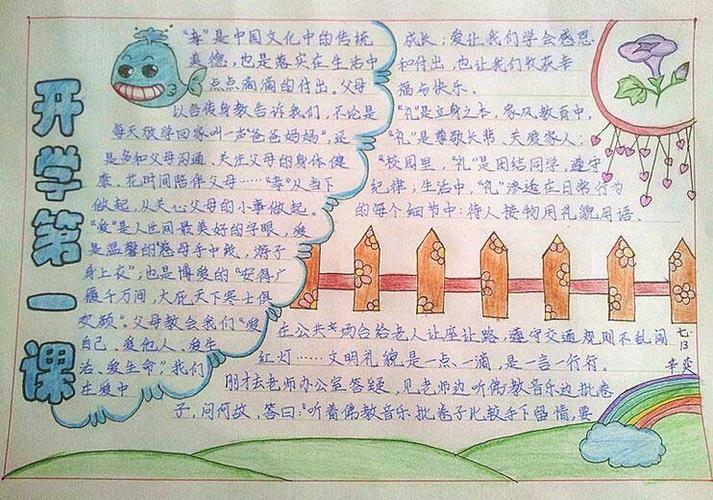 开学第一课
"孝"是中国文化中的传统
美德,也是落实在生活中
点点滴滴的付出。父母
以言传身教告诉我们,不论是
每天放学回家叫一声"爸爸妈妈",还
是多和父母沟通、关注父母的身体健
康、花时间陪伴父母……"孝"从当下
做起,从关心父母的小事做起。
"爱"是人世间最美好的字眼,爱
是温馨的"慈母手中线,游子
身上衣";也是博爱的"安得广
厦千万间,大庇天下寒士俱
欢颜"。父母教会我们"爱
自己、爱他人、爱生
活、爱生命",我们
在爱中
成长;爱让我们学会感恩
和付出,也让我们收获幸
福与快乐。
"礼"是立身之本,家风教育中,
"礼"是尊敬长辈、关爱家人;
"校园里,"礼"是团结同学,遵守
纪律;生活中,"礼"渗透在日常行为
的每个细节中:待人接物用礼貌用语、
在公共场合给老人让座让路,遵守交通规则不乱闯
红灯……文明礼貌是一点、一滴,是一言一行行。
刚才去老师办公室答疑,见老师边听佛教音乐边批卷
子,问何故,答曰:"听着佛教音乐批卷子比较手下留情,要
七.13
辛奕